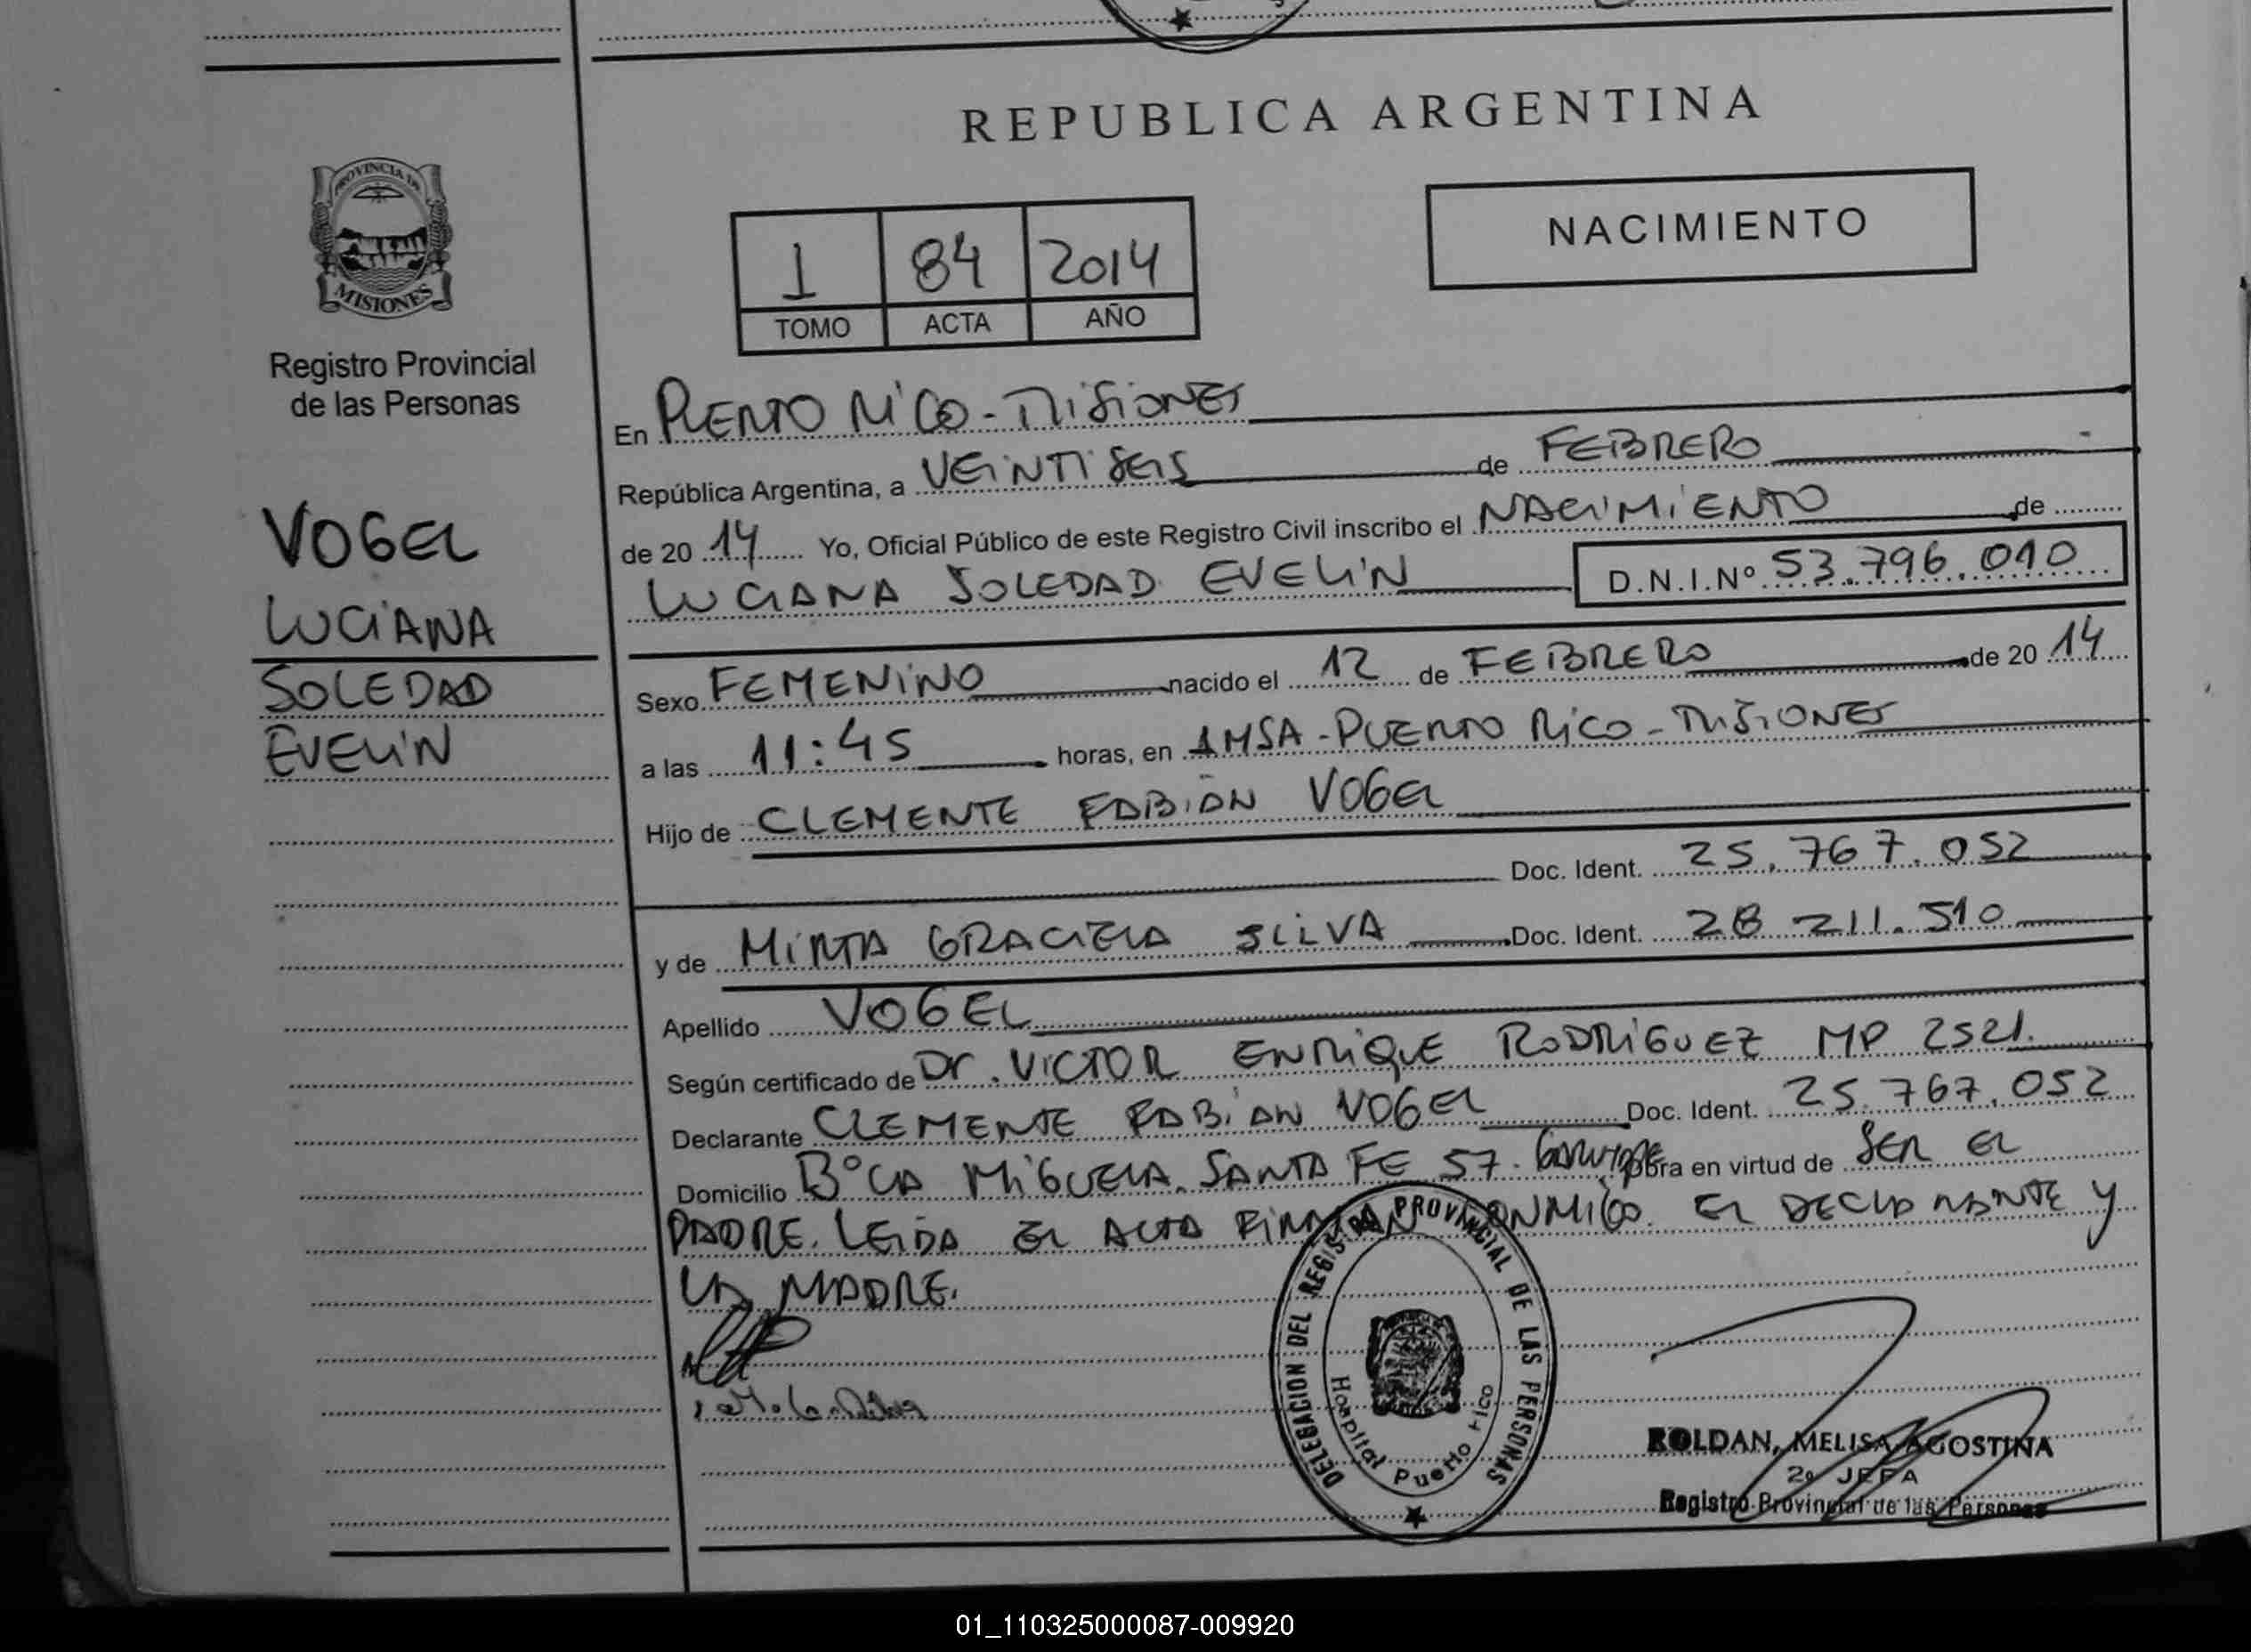 REPUBLICA ARGENTINA
PROVINCIA DE
MISIONES
Registro Provincial
de las Personas
NACIMIENTO
1 84 2014
TOMO ACTA AÑO
VOGEL
LUCIANA
SOLEDAD
EVELIN
En PUERTO RICO - MISIONES
República Argentina, a VEINTISEIS de FEBRERO
de 2014 Yo, Oficial Público de este Registro Civil inscribo el NACIMIENTO de
LUCIANA SOLEDAD EVELIN D.N.I.Nº 53.796.010
Sexo FEMENINO nacido el 12 de FEBRERO de 2014
a las 11:45 horas, en AMSA - PUERTO RICO - MISIONES
Hijo de CLEMENTE FABIAN VOGEL
Doc. Ident. 25.767.052
y de MIRTA GRACIELA SILVA Doc. Ident. 28 211.510
Apellido VOGEL
Según certificado de Dr. VICTOR ENRIQUE RODRIGUEZ MP 2521.
Declarante CLEMENTE FABIAN VOGEL Doc. Ident. 25.767.052
Domicilio Bº LA MIGUELA. SANTA FE 57. GARUHAPE Obra en virtud de SER EL
PADRE. LEIDA EL ACTA FIRMAN CONMIGO. EL DECLARANTE Y
LA MADRE.
DELEGACION DEL REGISTRO PROVINCIAL DE LAS PERSONAS
Hospital Puerto Rico
ROLDAN, MELISA AGOSTINA
2º JEFA
Registro Provincial de las Personas
01_110325000087-009920